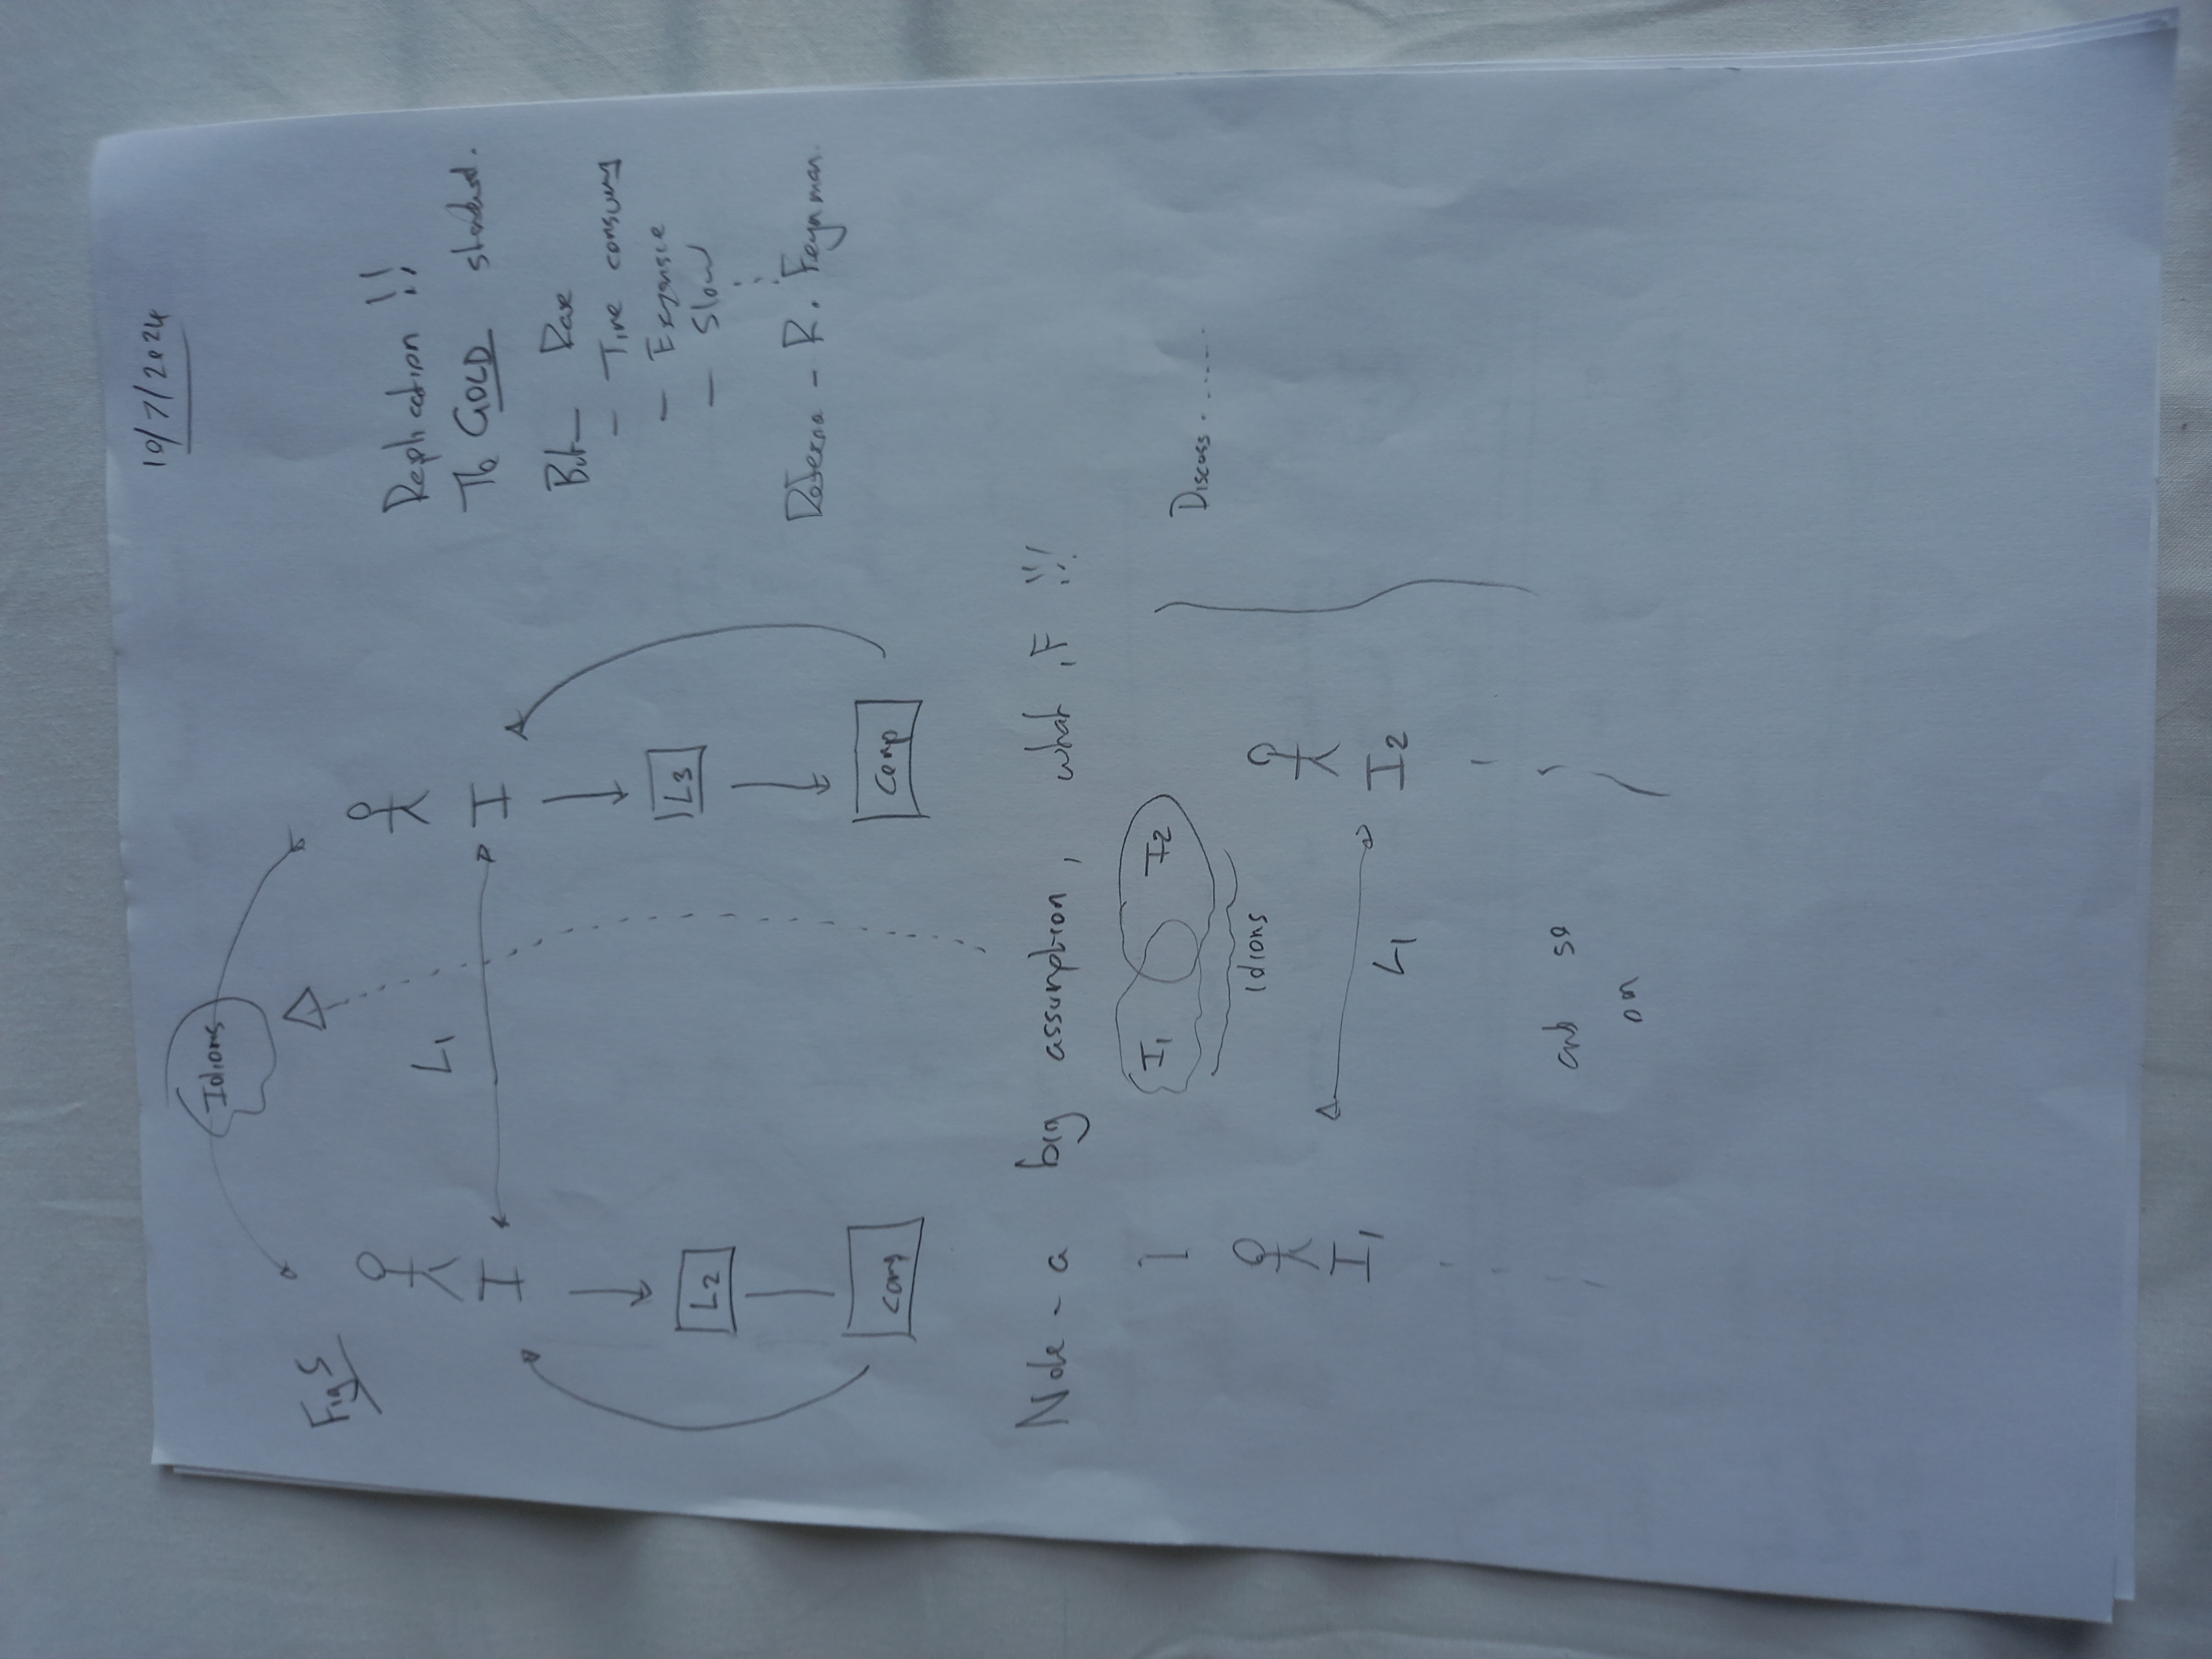 10/7/2024
Idioms
Fig 5
L1
I
I
L2
L3
Comp
Comp
Replication !!
The GOLD standard.
But — Rare
- Time consuming
- Expensive
- Slow
Reference - R. Feynman.
Note - a big assumption, what if !!!
I1
I2
Idioms
Discuss.......
I1
L1
I2
and so
on